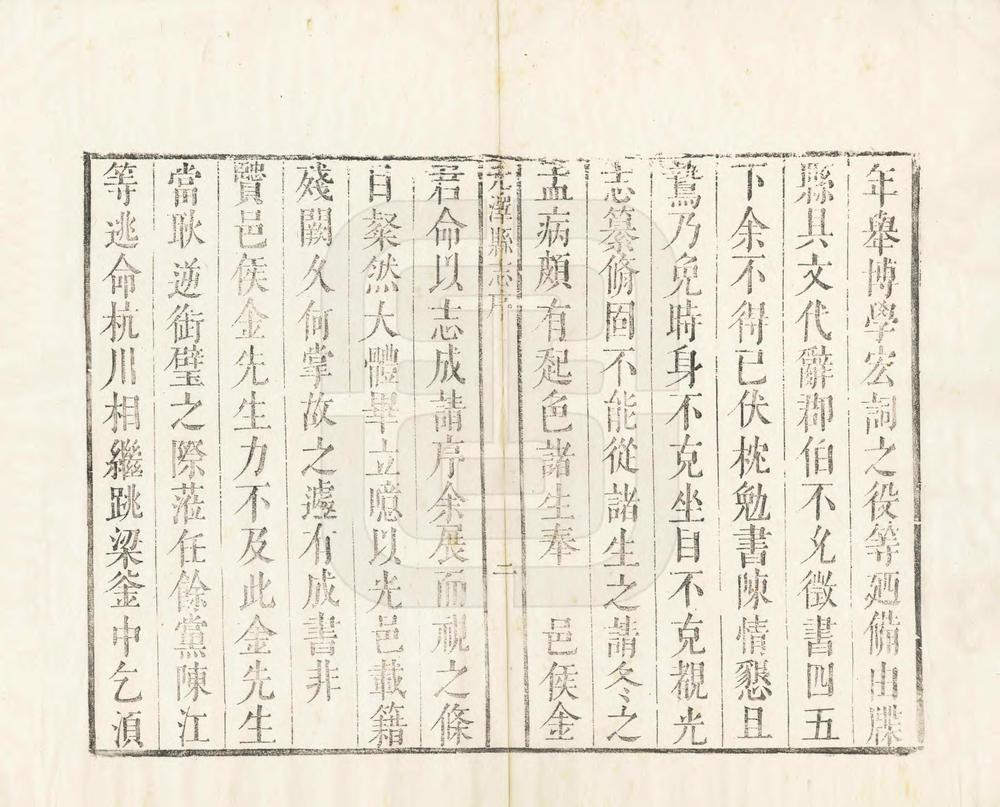 年舉博學宏詞之役等廼備由牒
縣具文代辭郡伯不允徵書四五
下余不得已伏枕勉書陳情懇且
鷙乃免時身不克坐目不克覩光
志纂脩固不能從諸生之請冬之
孟病頗有起色諸生奉 邑侯金
光澤縣志序 二
君命以志成請序余展而視之條
目粲然大體畢立噫以光邑載籍
殘闕久何掌故之遽有成書非
賢邑侯金先生力不及此金先生
當耿逆銜璧之際蒞任餘黨陳江
等逃命杭川相繼跳梁釜中乞湏